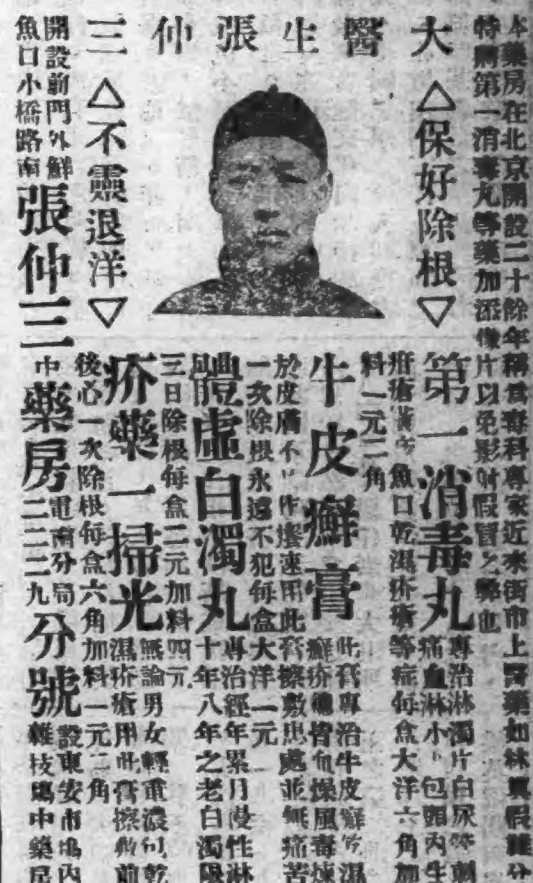 大醫生張仲三
本藥房在北京開設二十餘年稱為毒科專家近來街市上醫藥如林真假難分
特將第一消毒丸等藥加添像片以免影射假冒之弊也
△保好除根▽
△不靈退洋▽
第一消毒丸
專治淋濁片白尿等刺
痛血淋小包頭內生
疳瘡黃方魚口乾濕疥瘡等症每盒大洋六角加
料一元二角
牛皮癬膏
此膏專治牛皮癬疥濕
癬疥瘡皆血燥風毒煉
於皮膚不止作癢速用此膏擦敷患處並無痛苦
一次除根永遠不犯每盒大洋一元
體虛白濁丸
專治經年累月慢性淋
十年八年之老白濁限
三日除根每盒二元加料四元
疥藥一掃光
無論男女輕重濃包乾
濕疥瘡用此膏擦敷前
後心一次除根每盒六角加料一元二角
開設前門外鮮
魚口小橋路南
張仲三
中
藥房
電南分局
二二二九
分號
設東安市場內
雜技場中藥房